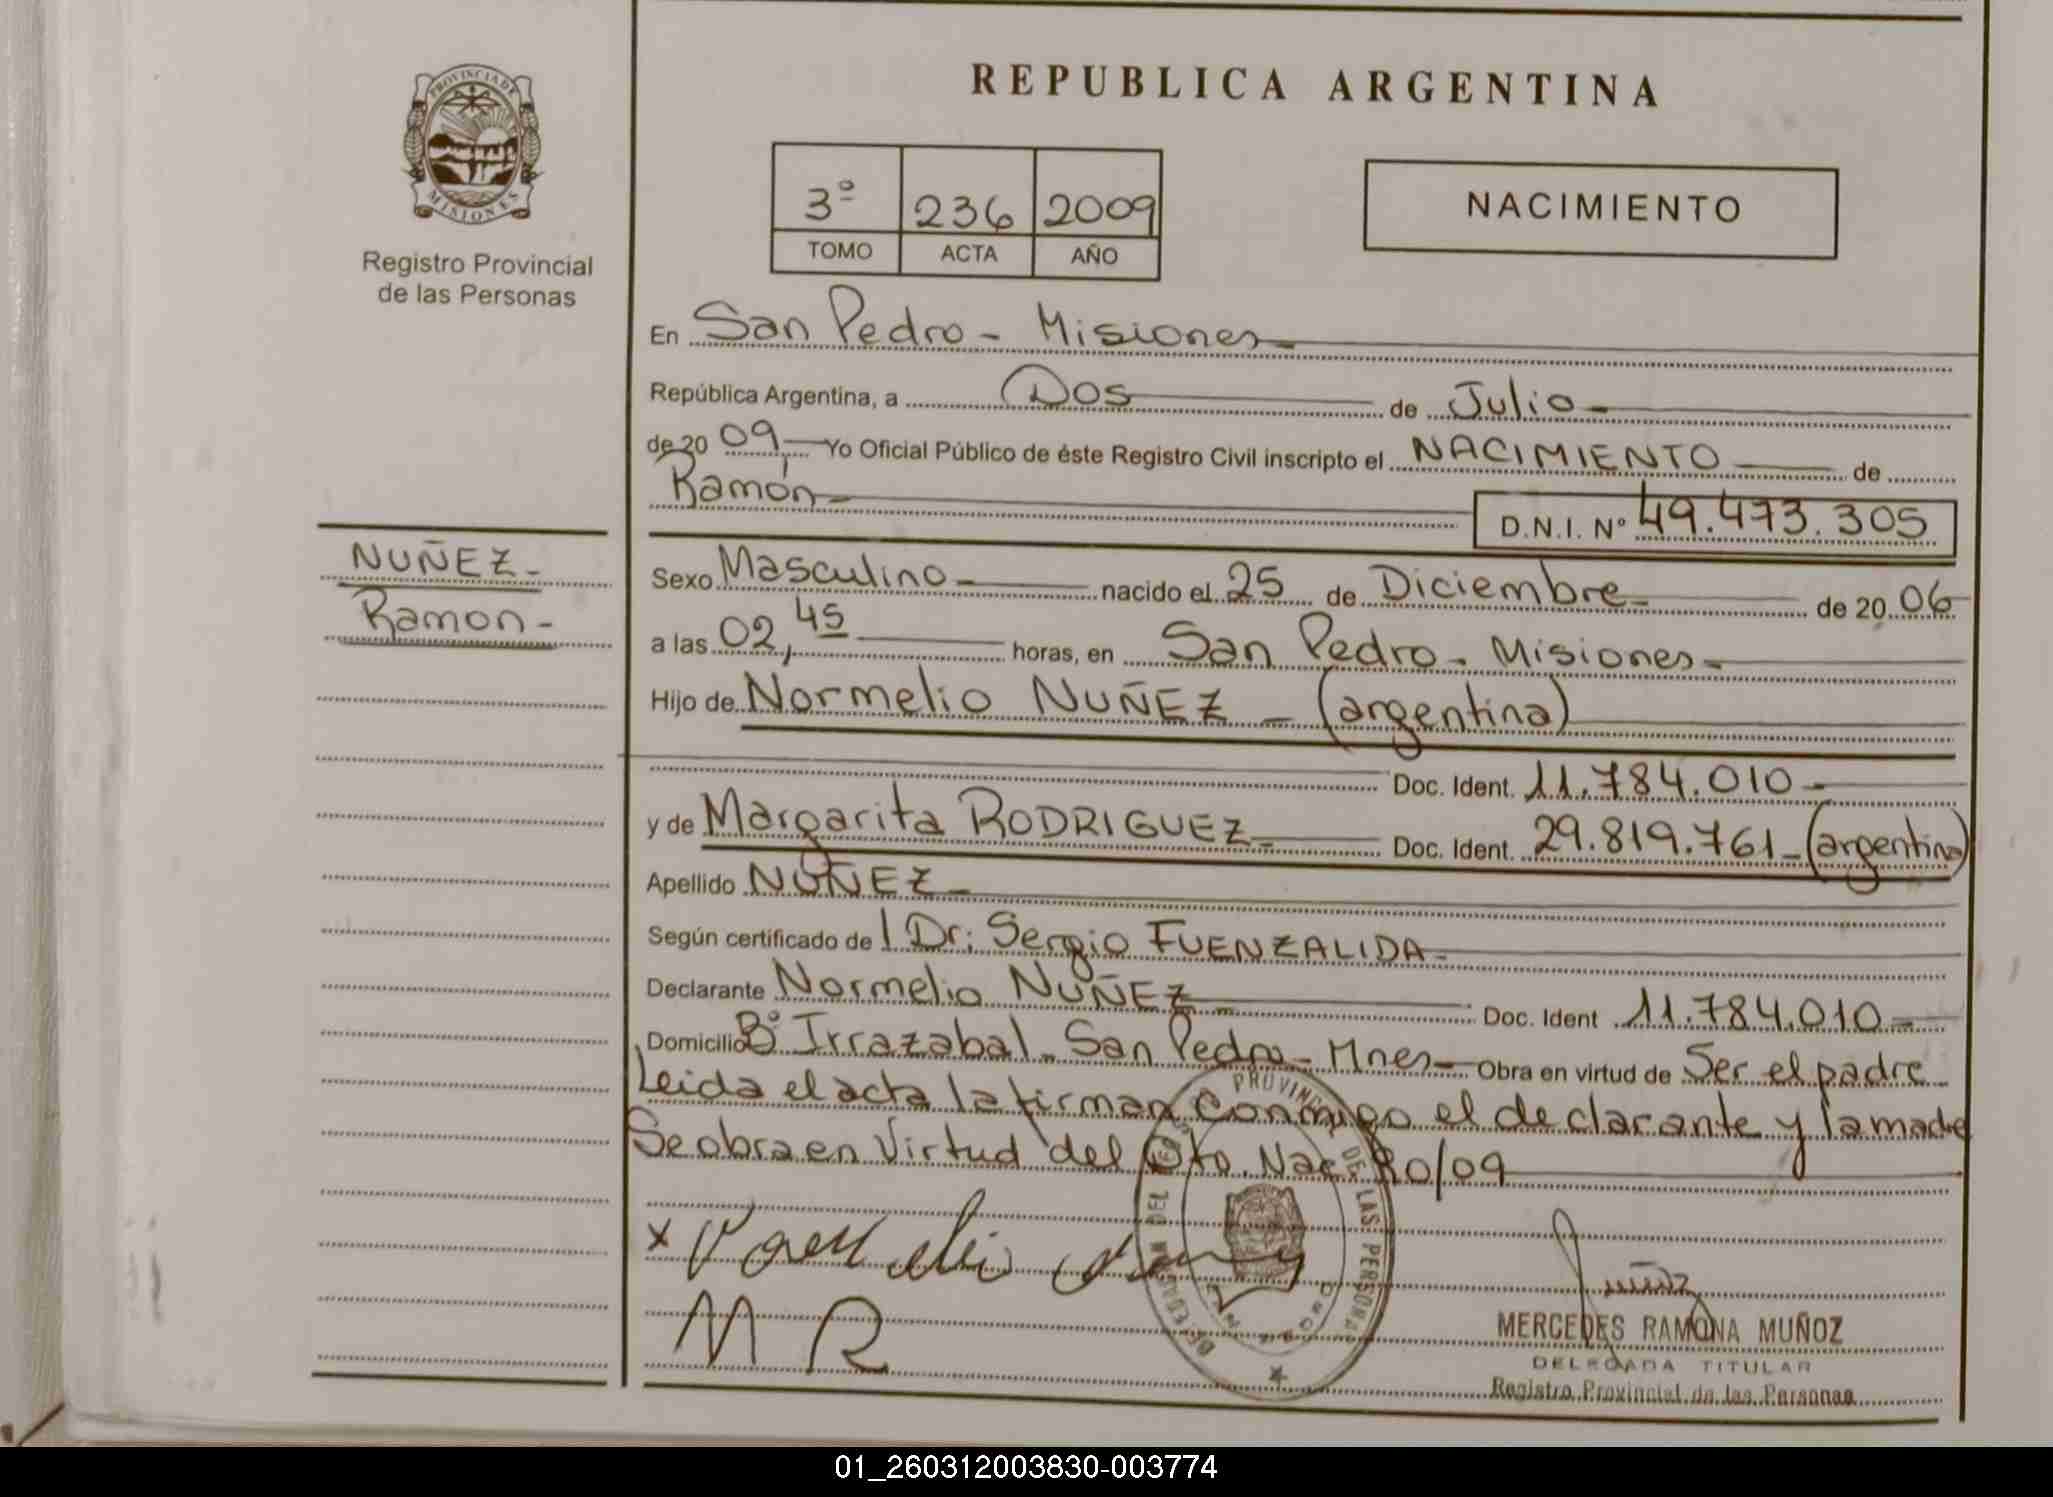 REPUBLICA ARGENTINA
PROVINCIA DE
MISIONES
Registro Provincial
de las Personas
3º 236 2009
TOMO ACTA AÑO
NACIMIENTO
En San Pedro - Misiones
República Argentina, a Dos de Julio
de 20 09, Yo Oficial Público de éste Registro Civil inscripto el NACIMIENTO de
Ramón
D.N.I. Nº 49.473.305
NUÑEZ
Ramon
Sexo Masculino nacido el 25 de Diciembre de 20 06
a las 02,45 horas, en San Pedro - Misiones
Hijo de Normelio NUÑEZ - (argentina)
Doc. Ident. 11.784.010
y de Margarita RODRIGUEZ Doc. Ident. 29.819.761 - (argentina)
Apellido NUÑEZ
Según certificado de l Dr: Sergio FUENZALIDA
Declarante Normelio NUÑEZ Doc. Ident 11.784.010
Domicilio Bº Irrazabal - San Pedro - Mnes Obra en virtud de Ser el padre
Leida el acta la firman conmigo el declarante y la madre
Se obra en Virtud del Dto. Nac 90/09
M R
MERCEDES RAMONA MUÑOZ
DELEGADA TITULAR
Registro Provincial de las Personas
01_260312003830-003774